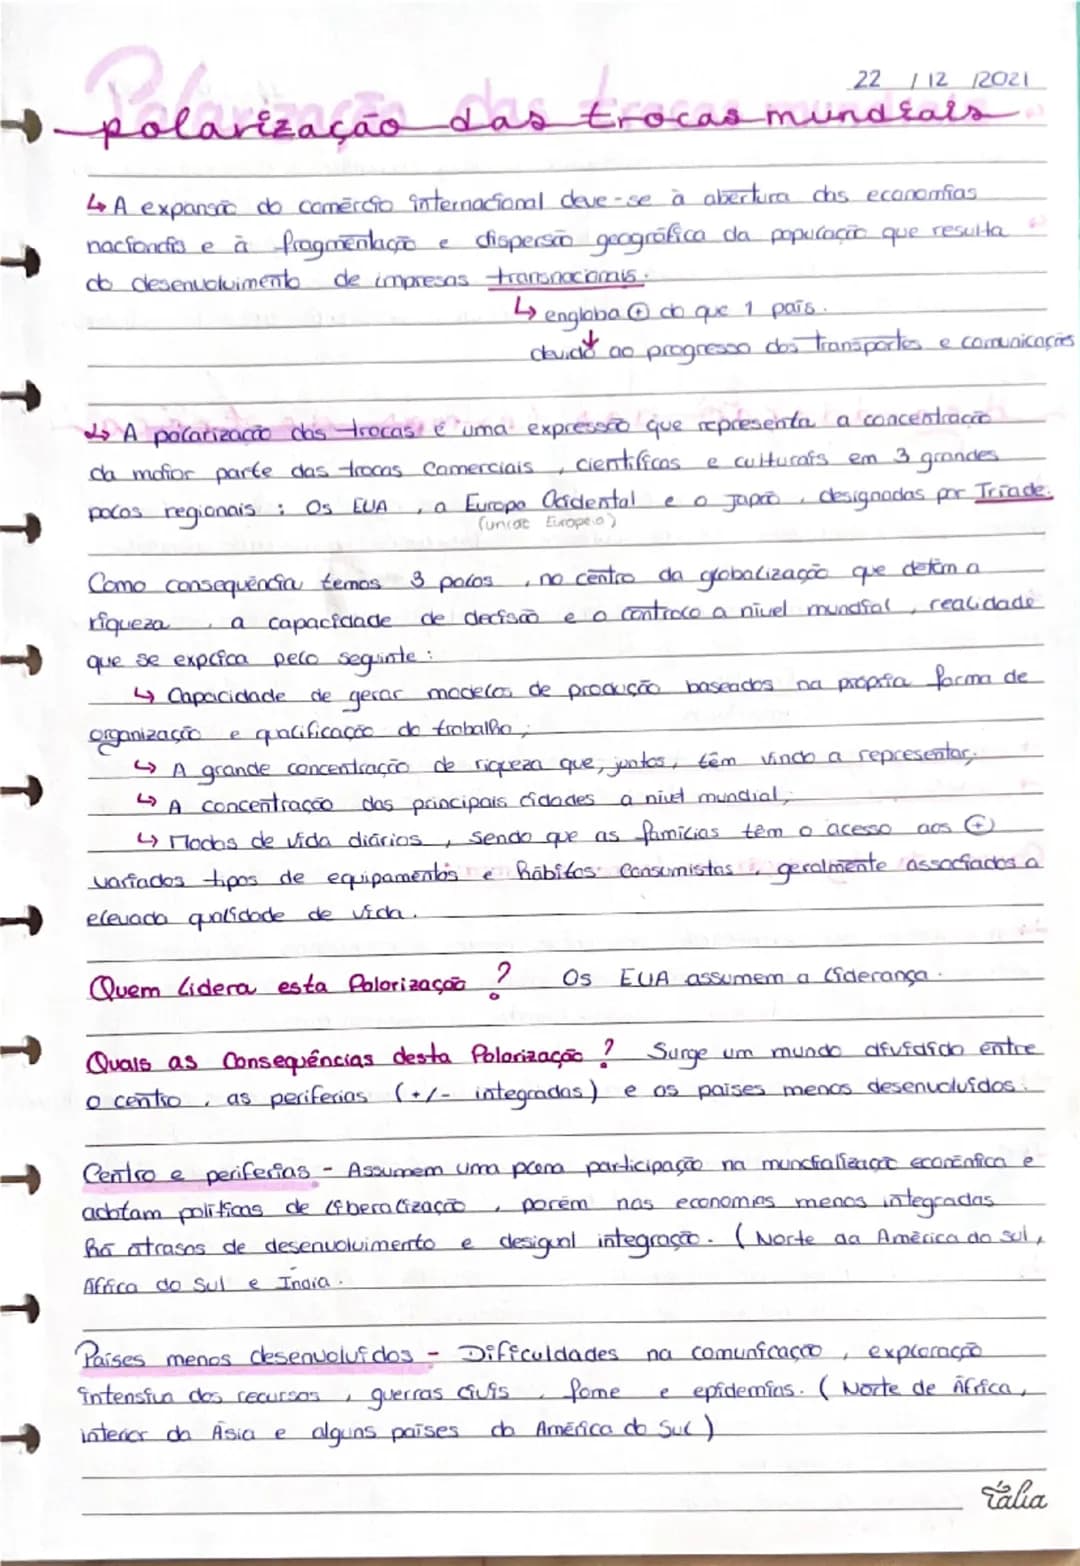 22 / 12 / 2021
Polarização das trocas mundiais
polarização das trocas mundiais
↳ A expansão do comércio internacional deve-se à abertura das economias
nacionais e à fragmentação e dispersão geográfica da população que resulta
do desenvolvimento de impresas transnacionais.
↳ engloba ⊕ do que 1 país.
devido ao progresso dos transportes e comunicações
↳ A polarização das trocas é uma expressão que representa a concentração
da maior parte das trocas comerciais, cientificas e culturais em 3 grandes
polos regionais: Os EUA, a Europa Ocidental e o Japão, designadas por Tríade.
(união Europeia)
Como consequência temos 3 polos, no centro da globalização que detêm a
riqueza, a capacidade de decisão e o controlo a nível mundial, realidade
que se explica pelo seguinte:
↳ Capacidade de gerar modelos de produção baseados na própria forma de
organização e qualificação do trabalho;
↳ A grande concentração de riqueza que, juntos, têm vindo a representar;
↳ A concentração das principais cidades a nível mundial;
↳ Modos de vida diários, sendo que as famílias têm o acesso aos ⊕
variados tipos de equipamentos e hábitos consumistas, geralmente associados a
elevada qualidade de vida.
Quem lidera esta Polarização? Os EUA assumem a liderança.
Quais as Consequências desta Polarização? Surge um mundo dividido entre
o centro, as periferias (+/- integradas) e os países menos desenvolvidos.
Centro e periferias - Assumem uma plena participação na mundialização económica e
adotam políticas de liberalização, porém nas economias menos integradas
há atrasos de desenvolvimento e desigual integração. (Norte da América do Sul,
África do Sul e Índia.
Países menos desenvolvidos - Dificuldades na comunicação, exploração
intensiva dos recursos, guerras civis, fome e epidemias. (Norte de África,
interior da Ásia e alguns países da América do Sul)
Talia